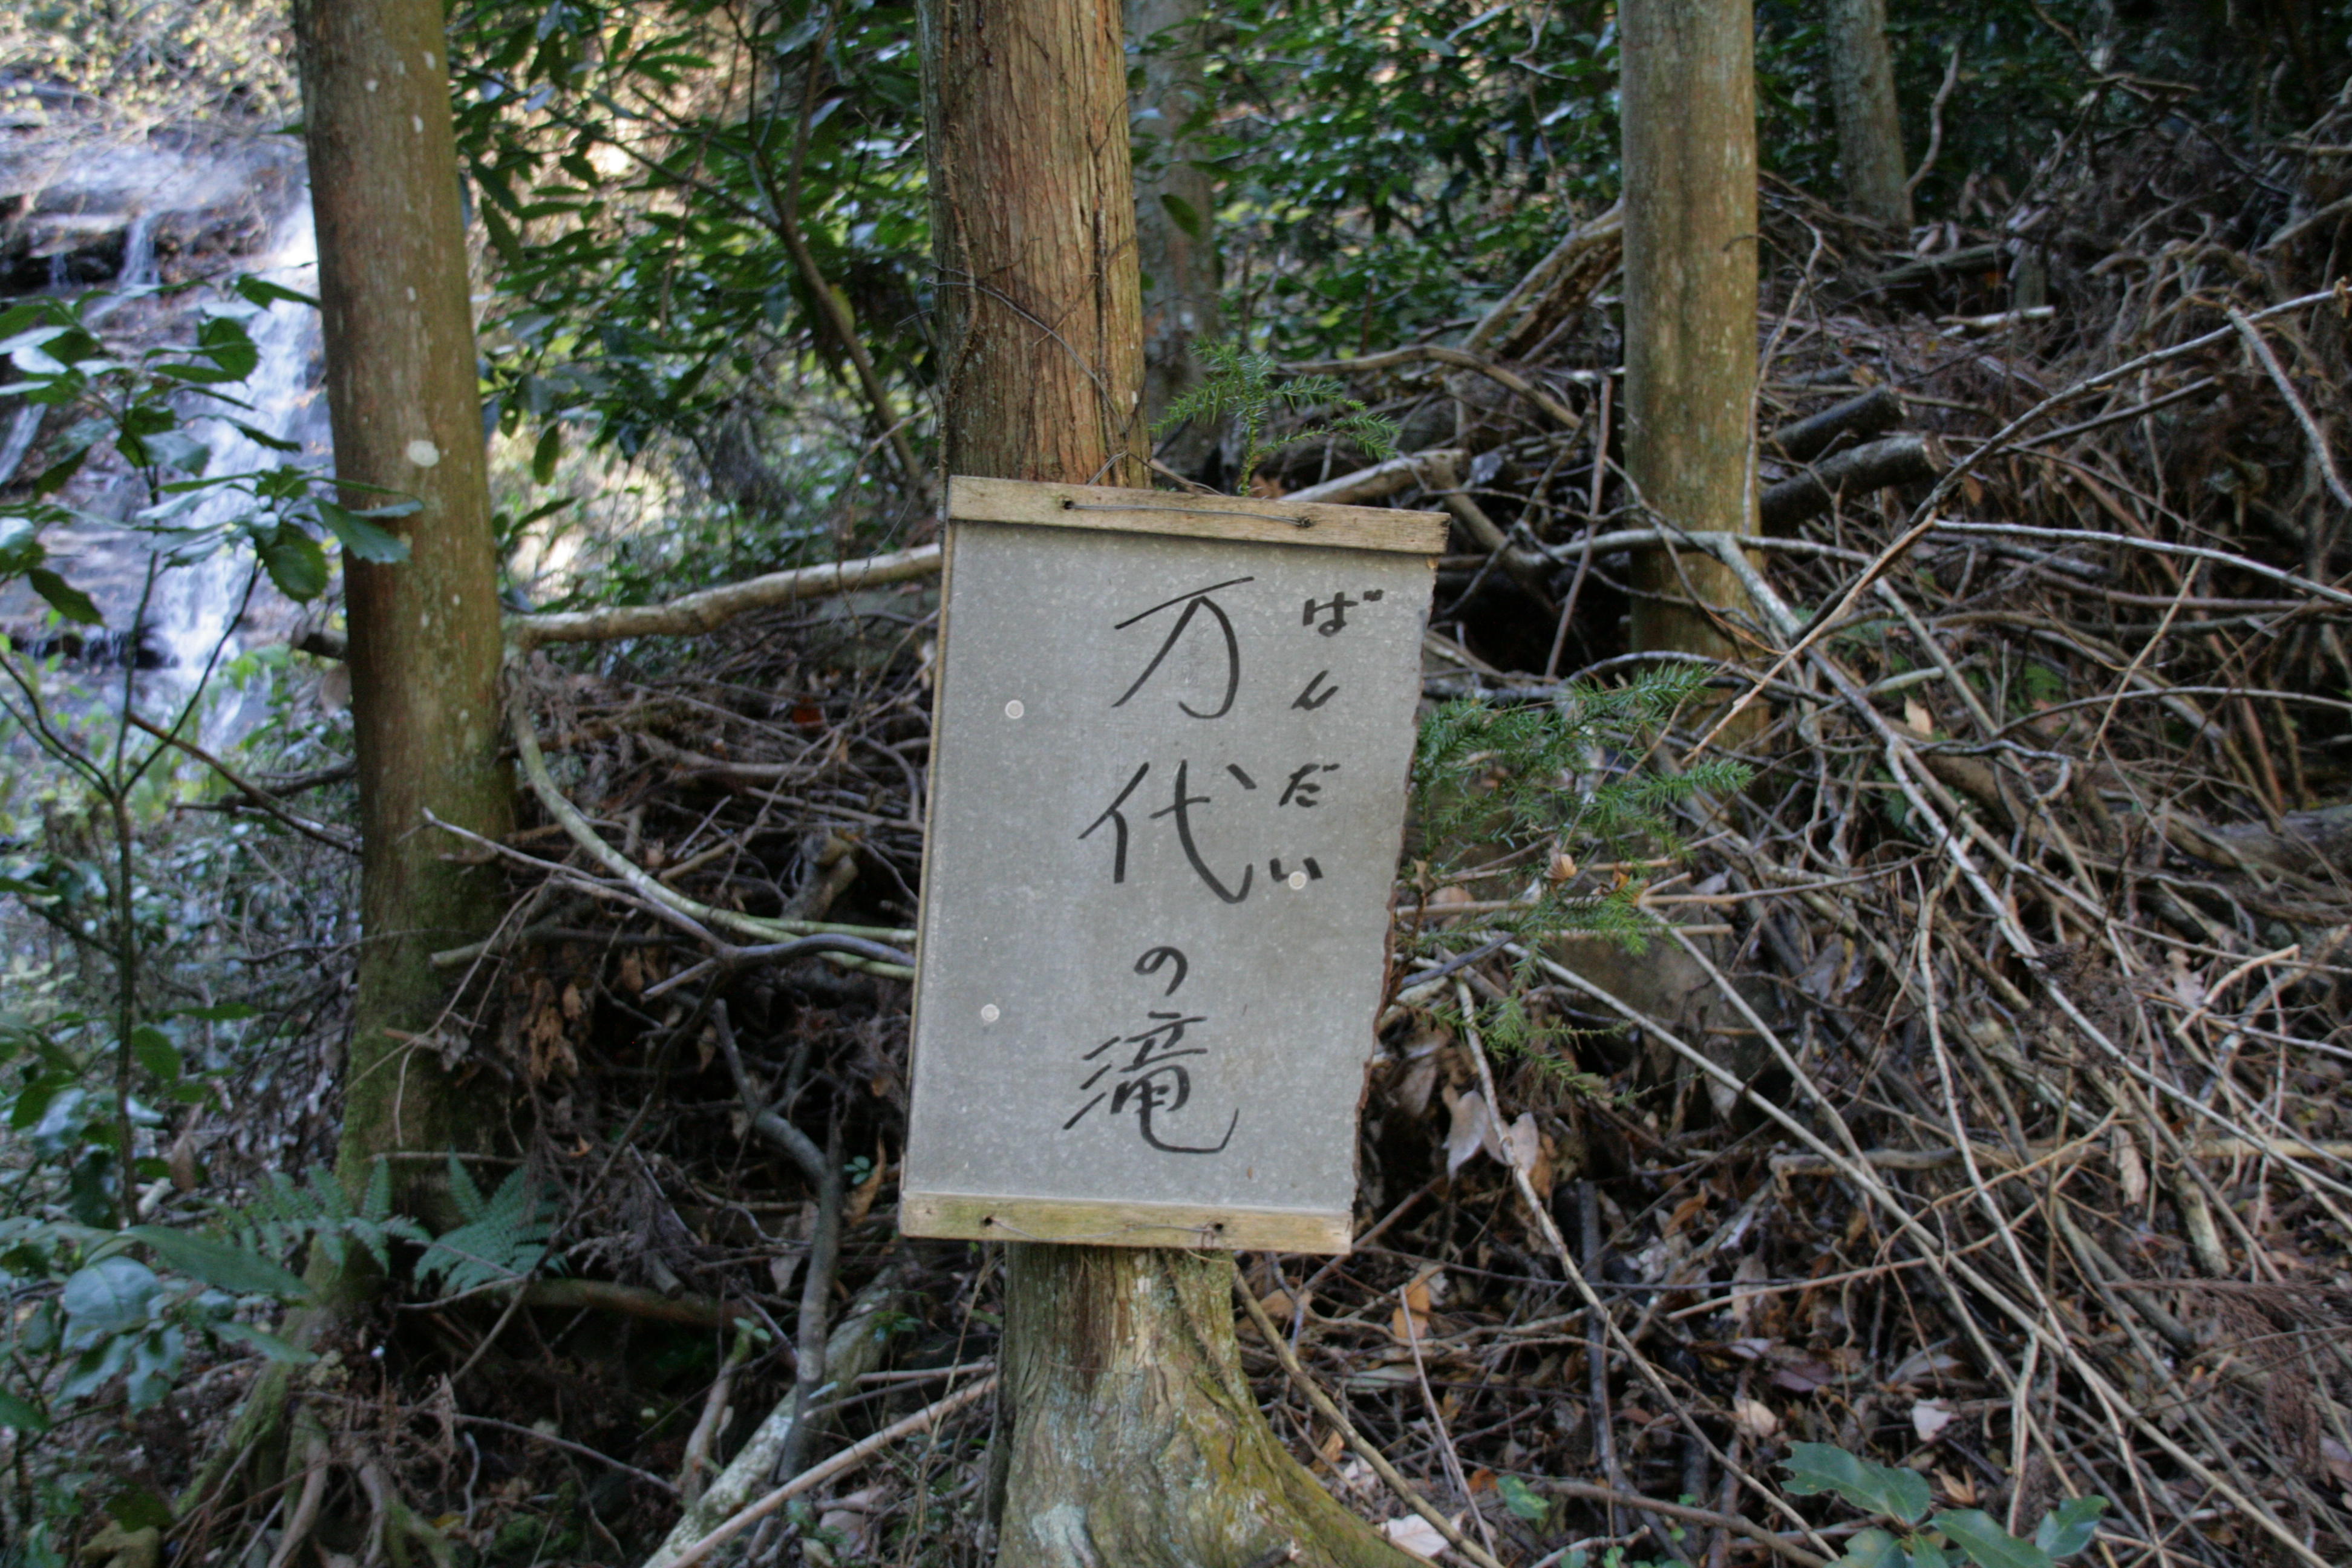 ばんだい
万代の滝